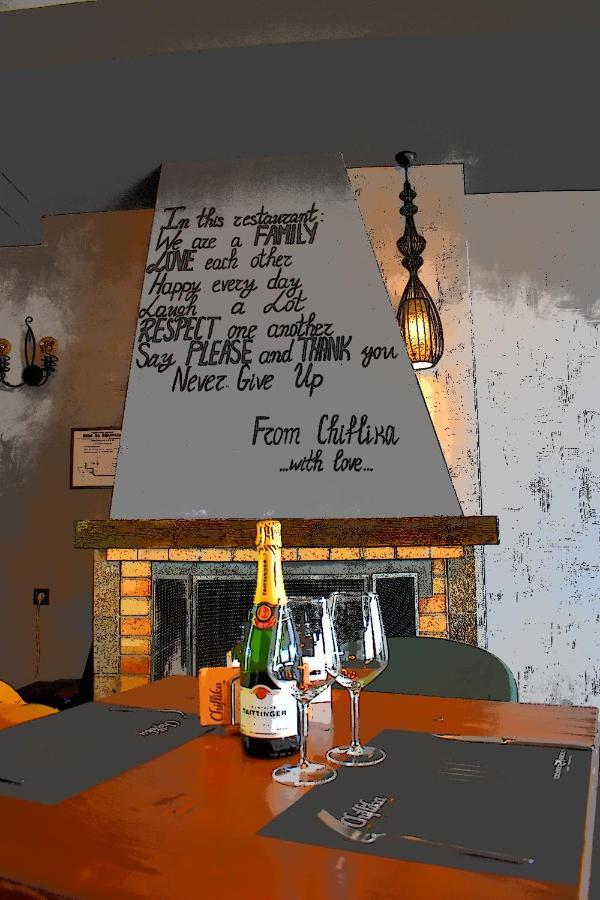 In this restaurant:
We are a FAMILY
LOVE each other
Happy every day
Laugh a Lot
RESPECT one another
Say PLEASE and THANK you
Never Give Up
From Chiflika
...with love...
TAITTINGER
Chiflika
Chiflika
Chiflika